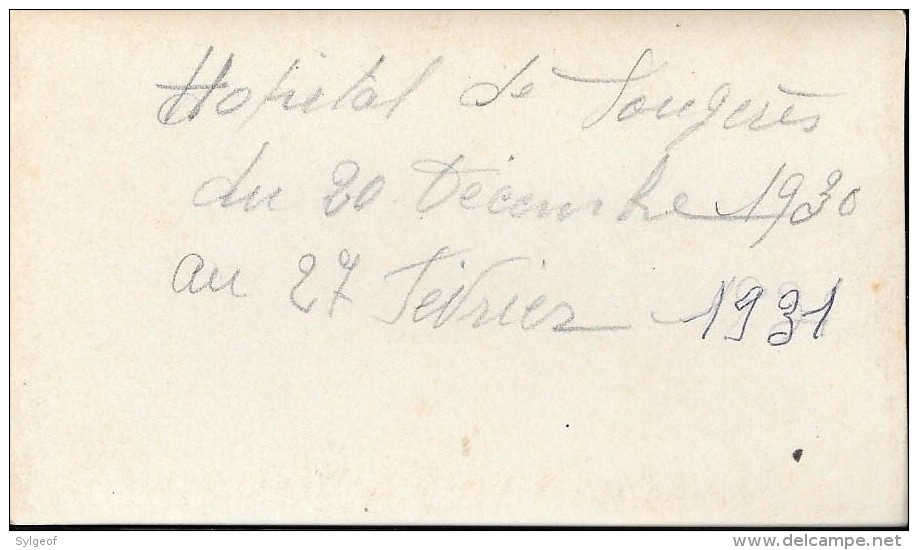 Hopital de Fougères
du 20 Décembre 1930
au 27 Février 1931
Sylgeof
www.delcampe.net